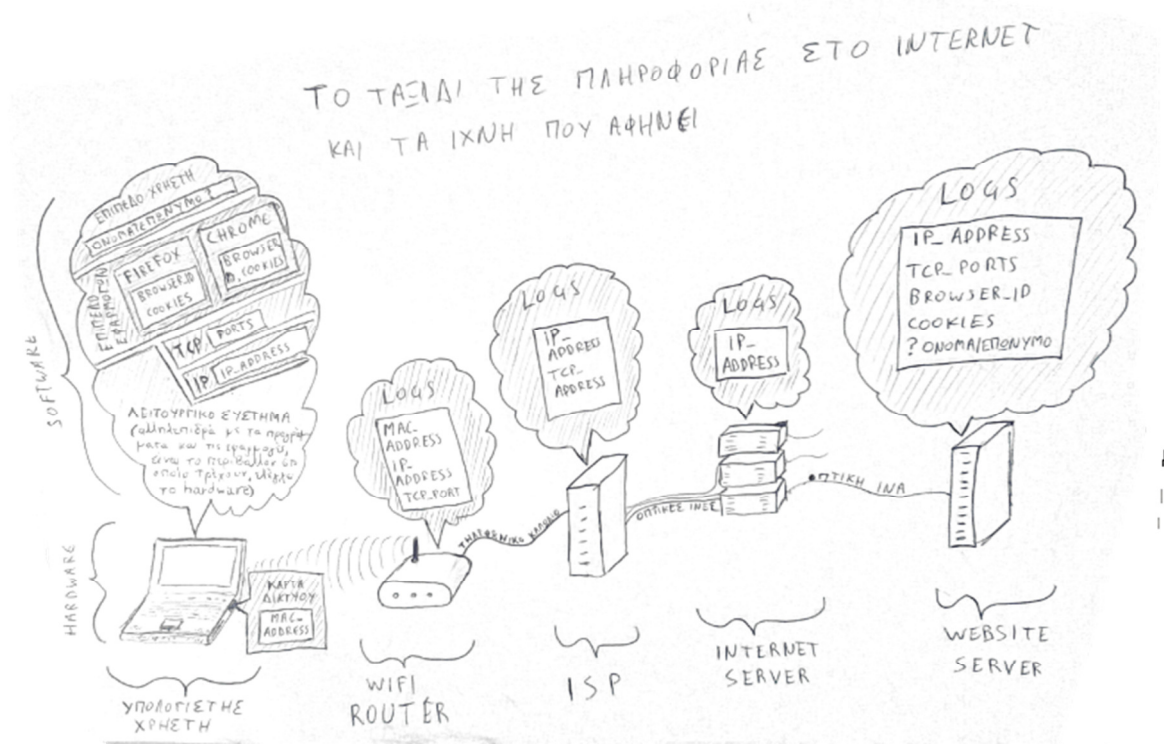 ΤΟ ΤΑΞΙΔΙ ΤΗΣ ΠΛΗΡΟΦΟΡΙΑΣ ΣΤΟ INTERNET
ΚΑΙ ΤΑ ΙΧΝΗ ΠΟΥ ΑΦΗΝΕΙ
SOFTWARE
ΕΠΙΠΕΔΟ ΧΡΗΣΤΗ
ΟΝΟΜΑΤΕΠΩΝΥΜΟ ?
ΕΠΙΠΕΔΟ
ΕΦΑΡΜΟΓΩΝ
FIREFOX
BROWSER_ID
COOKIES
CHROME
BROWSER
COOKIES
TCP PORTS
IP IP_ADDRESS
ΛΕΙΤΟΥΡΓΙΚΟ ΣΥΣΤΗΜΑ
(αλληλεπιδρά με τα προγράμ
ματα και τις εφαρμογές,
είναι το περιβάλλον στο
οποίο τρέχουν,
το hardware)
HARDWARE
ΚΑΡΤΑ
ΔΙΚΤΥΟΥ
MAC_
ADDRESS
ΥΠΟΛΟΓΙΣΤΗΣ
ΧΡΗΣΤΗ
LOGS
MAC_
ADDRESS
IP_
ADDRESS
TCP_PORT
WIFI
ROUTER
ΤΗΛΕΦΩΝΙΚΟ ΚΑΛΩΔΙΟ
LOGS
IP_
ADDRESS
TCP_
ADDRESS
ISP
ΟΠΤΙΚΕΣ ΙΝΕΣ
LOGS
IP_
ADDRESS
INTERNET
SERVER
ΟΠΤΙΚΗ ΙΝΑ
LOGS
IP_ADDRESS
TCP_PORTS
BROWSER_ID
COOKIES
? ΟΝΟΜΑ/ΕΠΩΝΥΜΟ
WEBSITE
SERVER